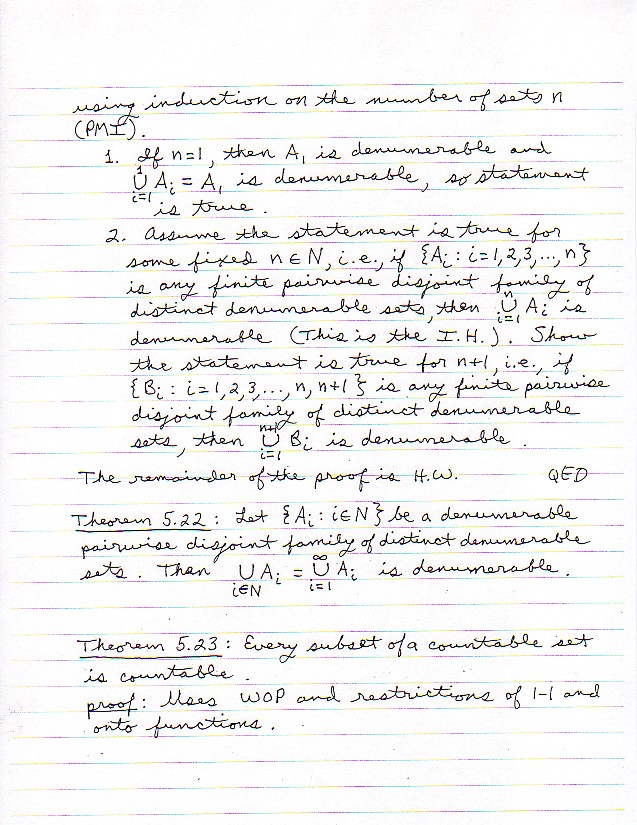 using induction on the number of sets n
(PMI).
1. If n=1, then A₁ is denumerable and
⋃_{i=1}^{1} A_i = A₁ is denumerable, so statement
is true.
2. Assume the statement is true for
some fixed n ∈ N, i.e., if {A_i : i=1,2,3,...,n}
is any finite pairwise disjoint family of
distinct denumerable sets, then ⋃_{i=1}^{n} A_i is
denumerable (This is the I.H.). Show
the statement is true for n+1, i.e., if
{B_i : i=1,2,3,...,n,n+1} is any finite pairwise
disjoint family of distinct denumerable
sets, then ⋃_{i=1}^{n+1} B_i is denumerable.
The remainder of the proof is H.W. QED
Theorem 5.22: Let {A_i : i∈N} be a denumerable
pairwise disjoint family of distinct denumerable
sets. Then ⋃_{i∈N} A_i = ⋃_{i=1}^{∞} A_i is denumerable.
Theorem 5.23: Every subset of a countable set
is countable.
proof: Uses WOP and restrictions of 1-1 and
onto functions.